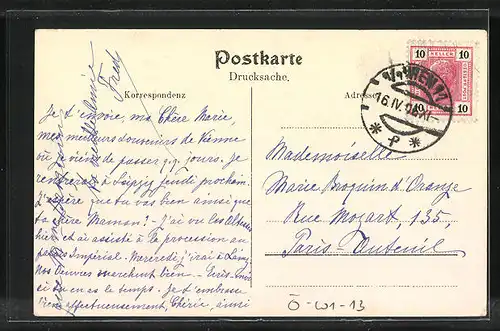 Postkarte
Drucksache.
Korrespondenz
Adresse
10 HELLER 10
10 10
9/4 WIEN
16.IV. XI
* P *
Je t'envoie, ma Chère Marie,
mes meilleurs souvenirs de Vienne
où je viens de passer qq. jours. Je
rentrerai à Leipzig Jeudi prochain.
J'espère que tu vas bien ainsi que
ta chère Maman? - J'ai vu les
hier et ai assisté à la procession au
palais Impérial. Mercredi j'irai à
Nos Oeuvres marchent bien - Ecris-moi
si tu en as le temps. Je t'embrasse
bien affectueusement, Chérie, ainsi
Fred
Mademoiselle
Marie Broquin d'Orange
Rue Mozart, 135,
Paris-Auteuil
Ö-W1-13